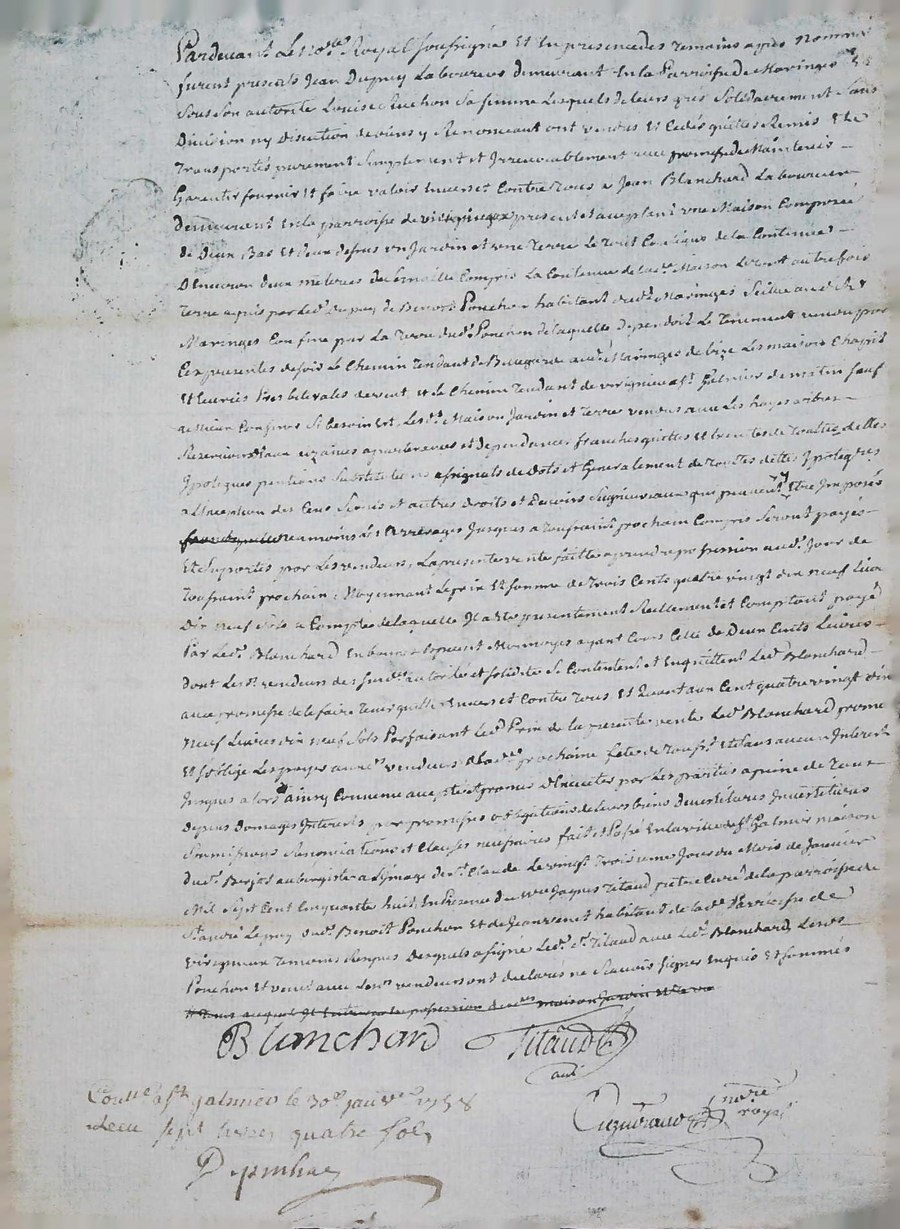 Pardevant Le no.re Royal soussigné Et En presence des Temoins apres nommés
furent presents Jean Dupuy Laboureur demeurant En la Parroisse de Maringes Et
sous son autorité Louise suchon sa femme Lesquels de leurs grés solidairement sans
Division ny Discution de biens y Renonceant ont vendus Et Cedés quittés Remis Et
Transportés purement simplement et Irrevocablement avec promesse de Maintenir
Garentir fournir Et faire valoir Envers et Contre Tous a Jean Blanchard Laboureur
demeurant En la parroisse de virigneux present et acceptant une Maison Composée
de Deux Bas Et Deux dessus un Jardin et une Terre Le Tout Contigus de la Contenue
D'Environ deux mesteres de semaille Compris La Contenue de lad.e Maison Le tout autrefois
Terre aquis par Led. Dupuy de Benoit Ponchon habitant aud. Maringes scitué aud.
Maringes Confiné par La Terre dud. Ponchon de laquelle Dependoit Le Tenement vendu par
Ces presentes de soir Le Chemin Tendant de Bellegarde aud. Maringes de bize Les maisons
et le Chemin Tendant de virigneux a S.t Galmier de matin sauf
de mieux Confiner si besoin Est, Lesd. Maison Jardin et Terre vendus avec Les hayes arbres
aparteneves et dependances franches quittes Et
Ypoteques pentions substitutions assignats de dots et Generalement de Toutes dettes Ypoteques
a L'Exception des Cens servis et autres droits et Devoirs seigneuriaux qui peuvent Etre Imposés
neamoins Arrerages Jusques a Toussaint prochain Compris seront payés
Et suportés par Les vendeurs, La presente vente faitte a prendre possession aud. Jour de
Toussaint prochain, Moyennant Le prix Et somme de Trois Cents quatre vingt dix neuf Livres
Dix neuf sols a Compte de laquelle Il a eté presentement Reellement et Comptant payé
Par Led. Blanchard En bourse Monnoyes ayant Cours Celle de Deux Cents Livres
dont Lesd. vendeurs des susd. autorité et solidité se Contentent et En quittent Led. Blanchard
avec promesse de le faire Tenir quitte Envers et Contre Tous Et Quant aux Cent quatre vingt dix
neuf Livres dix neuf sols Parfaisant Led. Prix de la presente vente Led. Blanchard promet
Et s'oblige Les payer auxd. vendeurs a Lad. prochaine fete de Touss.t Et sans aucun Interest
Jusques a lors ainsy Convenu accepté et promis d'Executer par Les parties a peine de Tous
depens Domages Interets par promesses obligations de leurs biens Devestitures Investitures
soumissions Renonciations et Clauses necessaires fait et Passé En la ville de S.t Galmier maison
du s.r Berjot aubergiste a L'Image de s.t Claude Le vingt Troisieme Jour du Mois de Janvier
Mil sept Cent Cinquante huit, En Presence de M.re Jaques Titaud pretre Curé de la parroisse de
S.t André Lepuy du s.r Benoit Ponchon Et de Jean venet habitant de lad.e Parroisse de
virigneux Temoins Requis Desquels a signé Led. s.r Titaud avec Led. Blanchard, Lesd.
Ponchon Et venet avec Lesd. vendeurs ont declarés ne sçavoir signer Enquis Et sommés
possession maison Jardin Et Terre
Blanchard Titaud
Con.lle a S.t galmier le 30.e janv.er 1758
Receu sept livres quatre sols
no.re royal